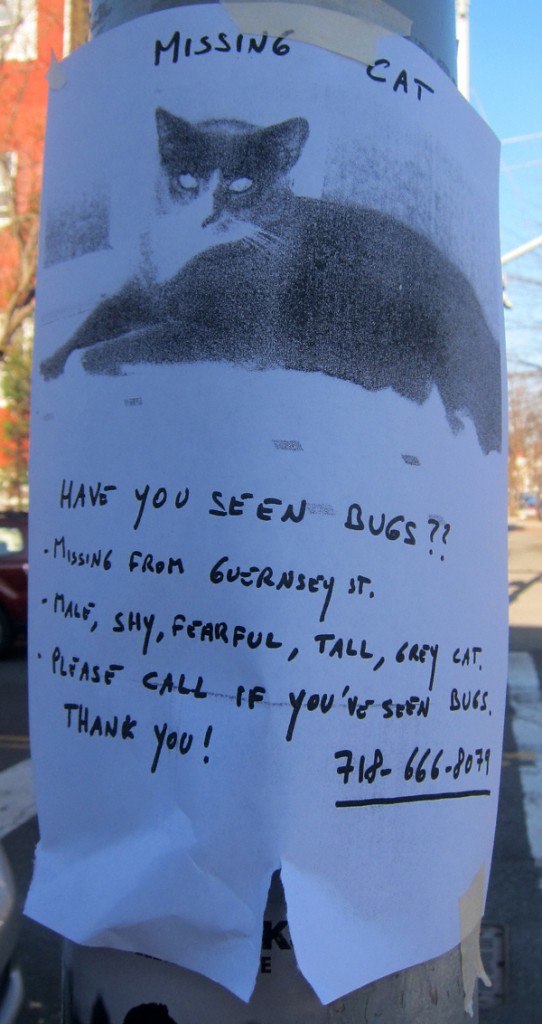 MISSING CAT
HAVE YOU SEEN BUGS??
· MISSING FROM GUERNSEY ST.
· MALE, SHY, FEARFUL, TALL, GREY CAT.
· PLEASE CALL IF YOU'VE SEEN BUGS.
THANK YOU!
718-666-8079
K
E